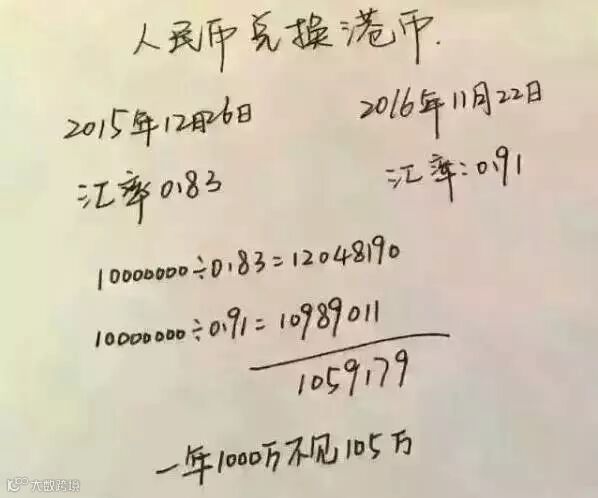 人民币兑换港币.
2015年12月26日
2016年11月22日
汇率0.83
汇率:0.91
10000000÷0.83=12048190
10000000÷0.91=10989011
1059179
一年1000万不见105万
大数跨境